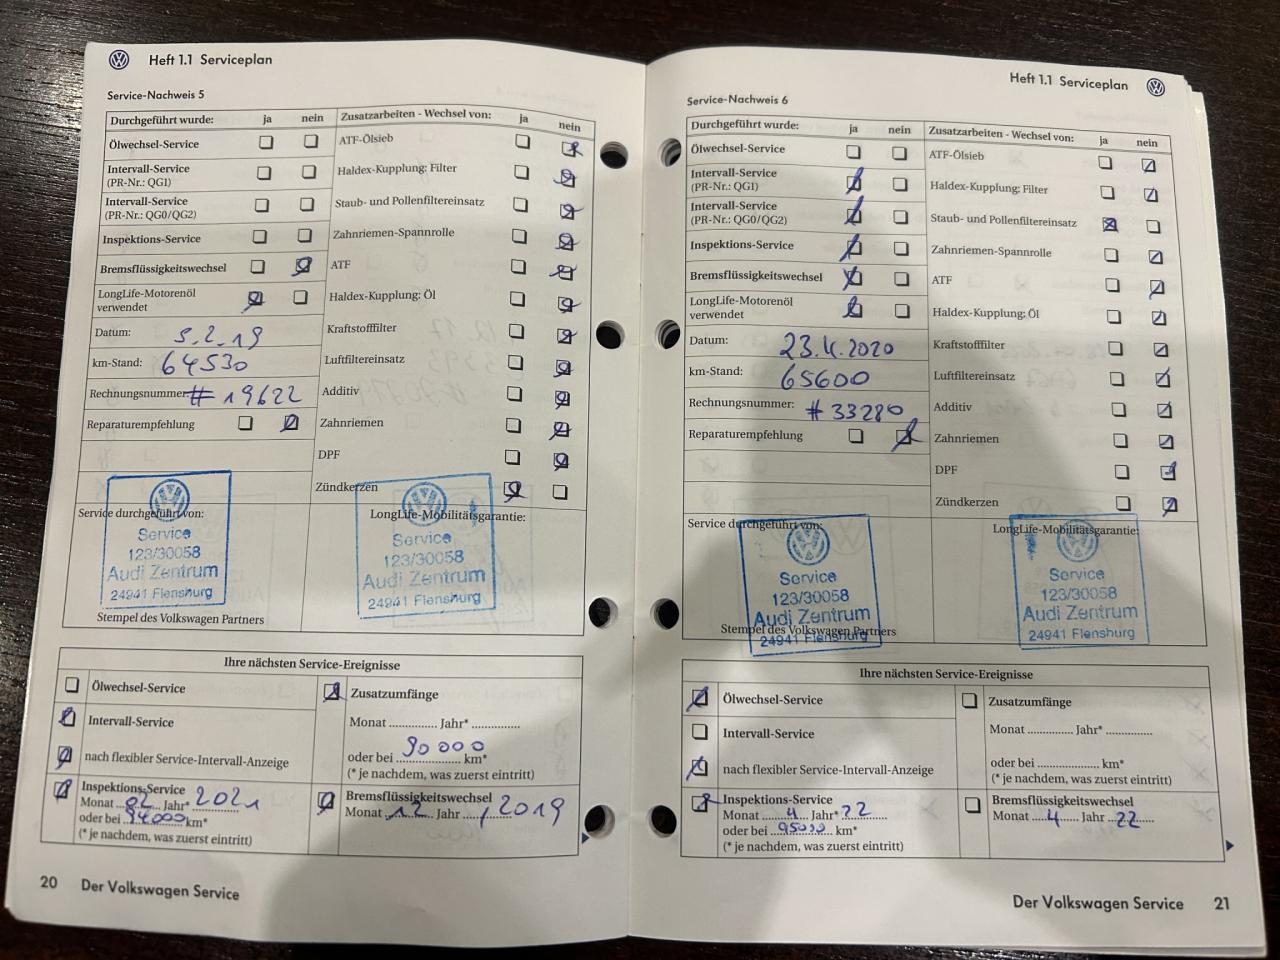 Heft 1.1 Serviceplan
Service-Nachweis 5
Durchgeführt wurde: ja nein
Ölwechsel-Service
Intervall-Service
(PR-Nr.: QG1)
Intervall-Service
(PR-Nr.: QG0/QG2)
Inspektions-Service
Bremsflüssigkeitswechsel
LongLife-Motorenöl
verwendet
Datum: 5.2.19
km-Stand: 64530
Rechnungsnummer: # 19622
Reparaturempfehlung
Zusatzarbeiten - Wechsel von: ja nein
ATF-Ölsieb
Haldex-Kupplung: Filter
Staub- und Pollenfiltereinsatz
Zahnriemen-Spannrolle
ATF
Haldex-Kupplung: Öl
Kraftstofffilter
Luftfiltereinsatz
Additiv
Zahnriemen
DPF
Zündkerzen
Service durchgeführt von:
Service
123/30058
Audi Zentrum
24941 Flensburg
Stempel des Volkswagen Partners
LongLife-Mobilitätsgarantie:
Service
123/30058
Audi Zentrum
24941 Flensburg
Ihre nächsten Service-Ereignisse
Ölwechsel-Service
Intervall-Service
nach flexibler Service-Intervall-Anzeige
Inspektions-Service
Monat 02 Jahr* 2021
oder bei 94000 km*
(* je nachdem, was zuerst eintritt)
Zusatzumfänge
Monat .............. Jahr* ..............
oder bei 90000 km*
(* je nachdem, was zuerst eintritt)
Bremsflüssigkeitswechsel
Monat 12 Jahr 2019
20 Der Volkswagen Service
Heft 1.1 Serviceplan
Service-Nachweis 6
Durchgeführt wurde: ja nein
Ölwechsel-Service
Intervall-Service
(PR-Nr.: QG1)
Intervall-Service
(PR-Nr.: QG0/QG2)
Inspektions-Service
Bremsflüssigkeitswechsel
LongLife-Motorenöl
verwendet
Datum: 23.4.2020
km-Stand: 65600
Rechnungsnummer: # 33280
Reparaturempfehlung
Zusatzarbeiten - Wechsel von: ja nein
ATF-Ölsieb
Haldex-Kupplung: Filter
Staub- und Pollenfiltereinsatz
Zahnriemen-Spannrolle
ATF
Haldex-Kupplung: Öl
Kraftstofffilter
Luftfiltereinsatz
Additiv
Zahnriemen
DPF
Zündkerzen
Service durchgeführt von:
Service
123/30058
Audi Zentrum
24941 Flensburg
Stempel des Volkswagen Partners
LongLife-Mobilitätsgarantie:
Service
123/30058
Audi Zentrum
24941 Flensburg
Ihre nächsten Service-Ereignisse
Ölwechsel-Service
Intervall-Service
nach flexibler Service-Intervall-Anzeige
Inspektions-Service
Monat 4 Jahr* 22
oder bei 95000 km*
(* je nachdem, was zuerst eintritt)
Zusatzumfänge
Monat .............. Jahr* ..............
oder bei ...................... km*
(* je nachdem, was zuerst eintritt)
Bremsflüssigkeitswechsel
Monat 4 Jahr 22
Der Volkswagen Service 21